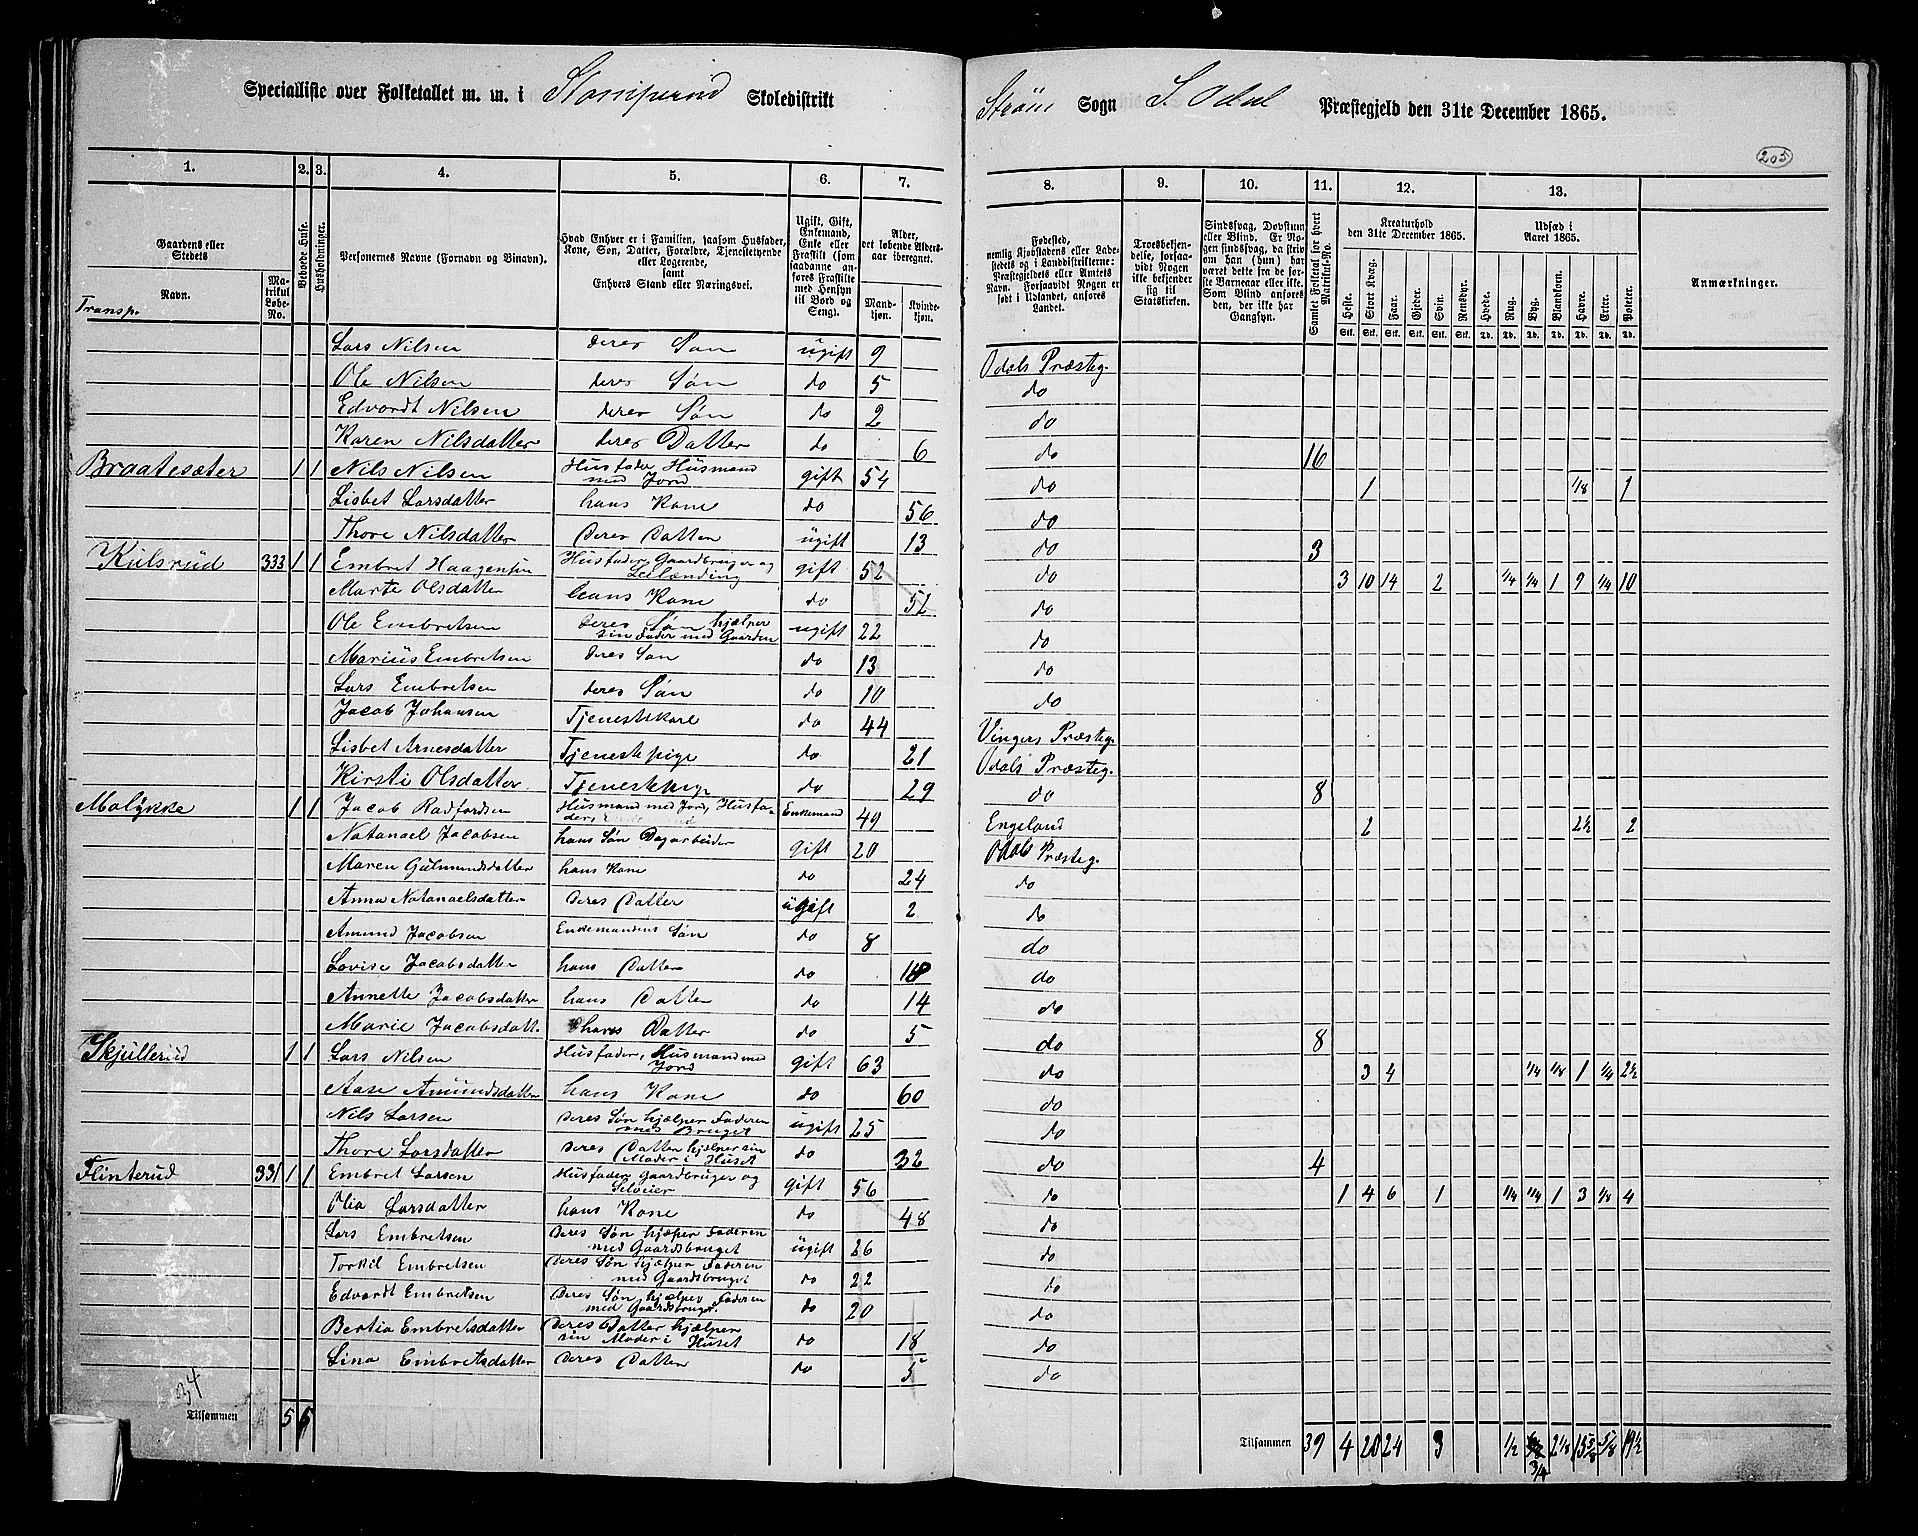 Specialliste over Folketallet m. m. i Stomperud Skoledistrikt Strøm Sogn S. Odal Præstegjeld den 31te December 1865.
205
1. 2. 3. 4. 5. 6. 7. 8. 9. 10. 11. 12. 13.
Gaardens eller Stedets
Navn.
Matrikul Løbe-No.
Beboede Huse.
Husholdninger.
Personernes Navne (Fornavn og Binavn).
Hvad Enhver er i Familien, saasom Husfader, Kone, Søn, Datter, Forældre, Tjenestetyende eller Logerende, samt Enhvers Stand eller Næringsvei.
Ugift, Gift, Enkemand, Enke eller Fraskilt (som saadanne anføres Fraskilte med Hensyn til Bord og Seng).
Alder, det løbende Aldersaar iberegnet.
Mandkjøn. Kvindekjøn.
Fødested, nemlig Kjøbstadens eller Ladestedets og i Landdistrikterne: Præstegjeldets eller Amtets Navn. Forsaavidt Nogen er født i Udlandet, anføres Landet.
Troesbekjendelse, forsaavidt Nogen ikke bekjender sig til Statskirken.
Sindssvag, Døvstum eller Blind. Er Nogen sindssvag, da skrives om han (hun) har været dette fra de første Barneaar eller ikke. Som Blind anføres den, der ikke har Gangsyn.
Samlet Folketal for hvert Matrikul-No.
Kreaturhold den 31te December 1865.
Heste. Stort Kvæg. Faar. Gjeder. Svin. Rensdyr.
Udsæd i Aaret 1865.
Hvede. Rug. Byg. Blandkorn. Havre. Erter. Poteter.
Anmærkninger.
Transp.
Lars Nilsen deres Søn ugift 9 Odals Præsteg.
Ole Nilsen deres Søn do 5 do
Edvardt Nilsen deres Søn do 2 do
Karen Nilsdatter deres Datter do 6 do 16
Braatesæter 1 1 Nils Nilsen Husfader, Husmand med Jord gift 54 do 1 1/8 1
Lisbet Larsdatter hans Kone do 56 do
Thore Nilsdatter deres Datter ugift 13 do 3
Kulsrud 333 1 1 Embret Haagensen Husfader, Gaardbruger og Leilænding gift 52 do 3 10 14 2 1/4 1/4 1 9 1/4 10
Marte Olsdatter hans Kone do 52 do
Ole Embretsen deres Søn hjælper sin Fader med Gaarden ugift 22 do
Marius Embretsen deres Søn do 13 do
Lars Embretsen deres Søn do 10 do
Jacob Johansen Tjenestekarl do 44 Vingers Præsteg.
Lisbet Arnesdatter Tjenestepige do 21 Odals Præsteg.
Kirsti Olsdatter Tjenestepige do 29 do 8
Molykke 1 1 Jacob Radfordsen Husmand med Jord, Husfader, Enkemand 49 Engeland 2 2½ 2
Natanael Jacobsen hans Søn Dagarbeider gift 20 Odals Præsteg.
Maren Gulmundsdatter hans Kone do 24 do
Anna Natanaelsdatter deres Datter ugift 2 do
Amund Jacobsen Enkemandens Søn do 8 do
Lovise Jacobsdatter hans Datter do 18 do
Annette Jacobsdatter hans Datter do 14 do
Marie Jacobsdatt. hans Datter do 5 do 8
Skjullerud 1 1 Lars Nilsen Husfader, Husmand med Jord gift 63 do 3 4 1/4 1/8 1 1/4 2½
Aase Amundsdatter hans Kone do 60 do
Nils Larsen deres Søn hjælper Faderen med Bruget ugift 25 do
Thore Larsdatter deres Datter hjælper sin Moder i Huset do 32 do 4
Flinterud 331 1 1 Embret Larsen Husfader Gaardbruger og Selveier gift 56 do 1 4 6 1 1/4 1/4 1 3 1/8 4
Olia Larsdatter hans Kone do 48 do
Lars Embretsen deres Søn hjælper Faderen med Gaardsbruget ugift 26 do
Torkil Embretsen deres Søn hjælper Faderen med Gaardsbruget do 22 do
Edvardt Embretsen deres Søn hjælper Faderen med Gaardsbruget. do 20 do
Bertia Embretsdatter deres Datter hjælper sin Moder i Huset do 18 do
Lina Embretsdatter deres Datter do 5 do
34
Tilsammen 5 5
Tilsammen 39 4 20 24 3 1/2 3/4 2 1/8 15 5/8 5/8 19½